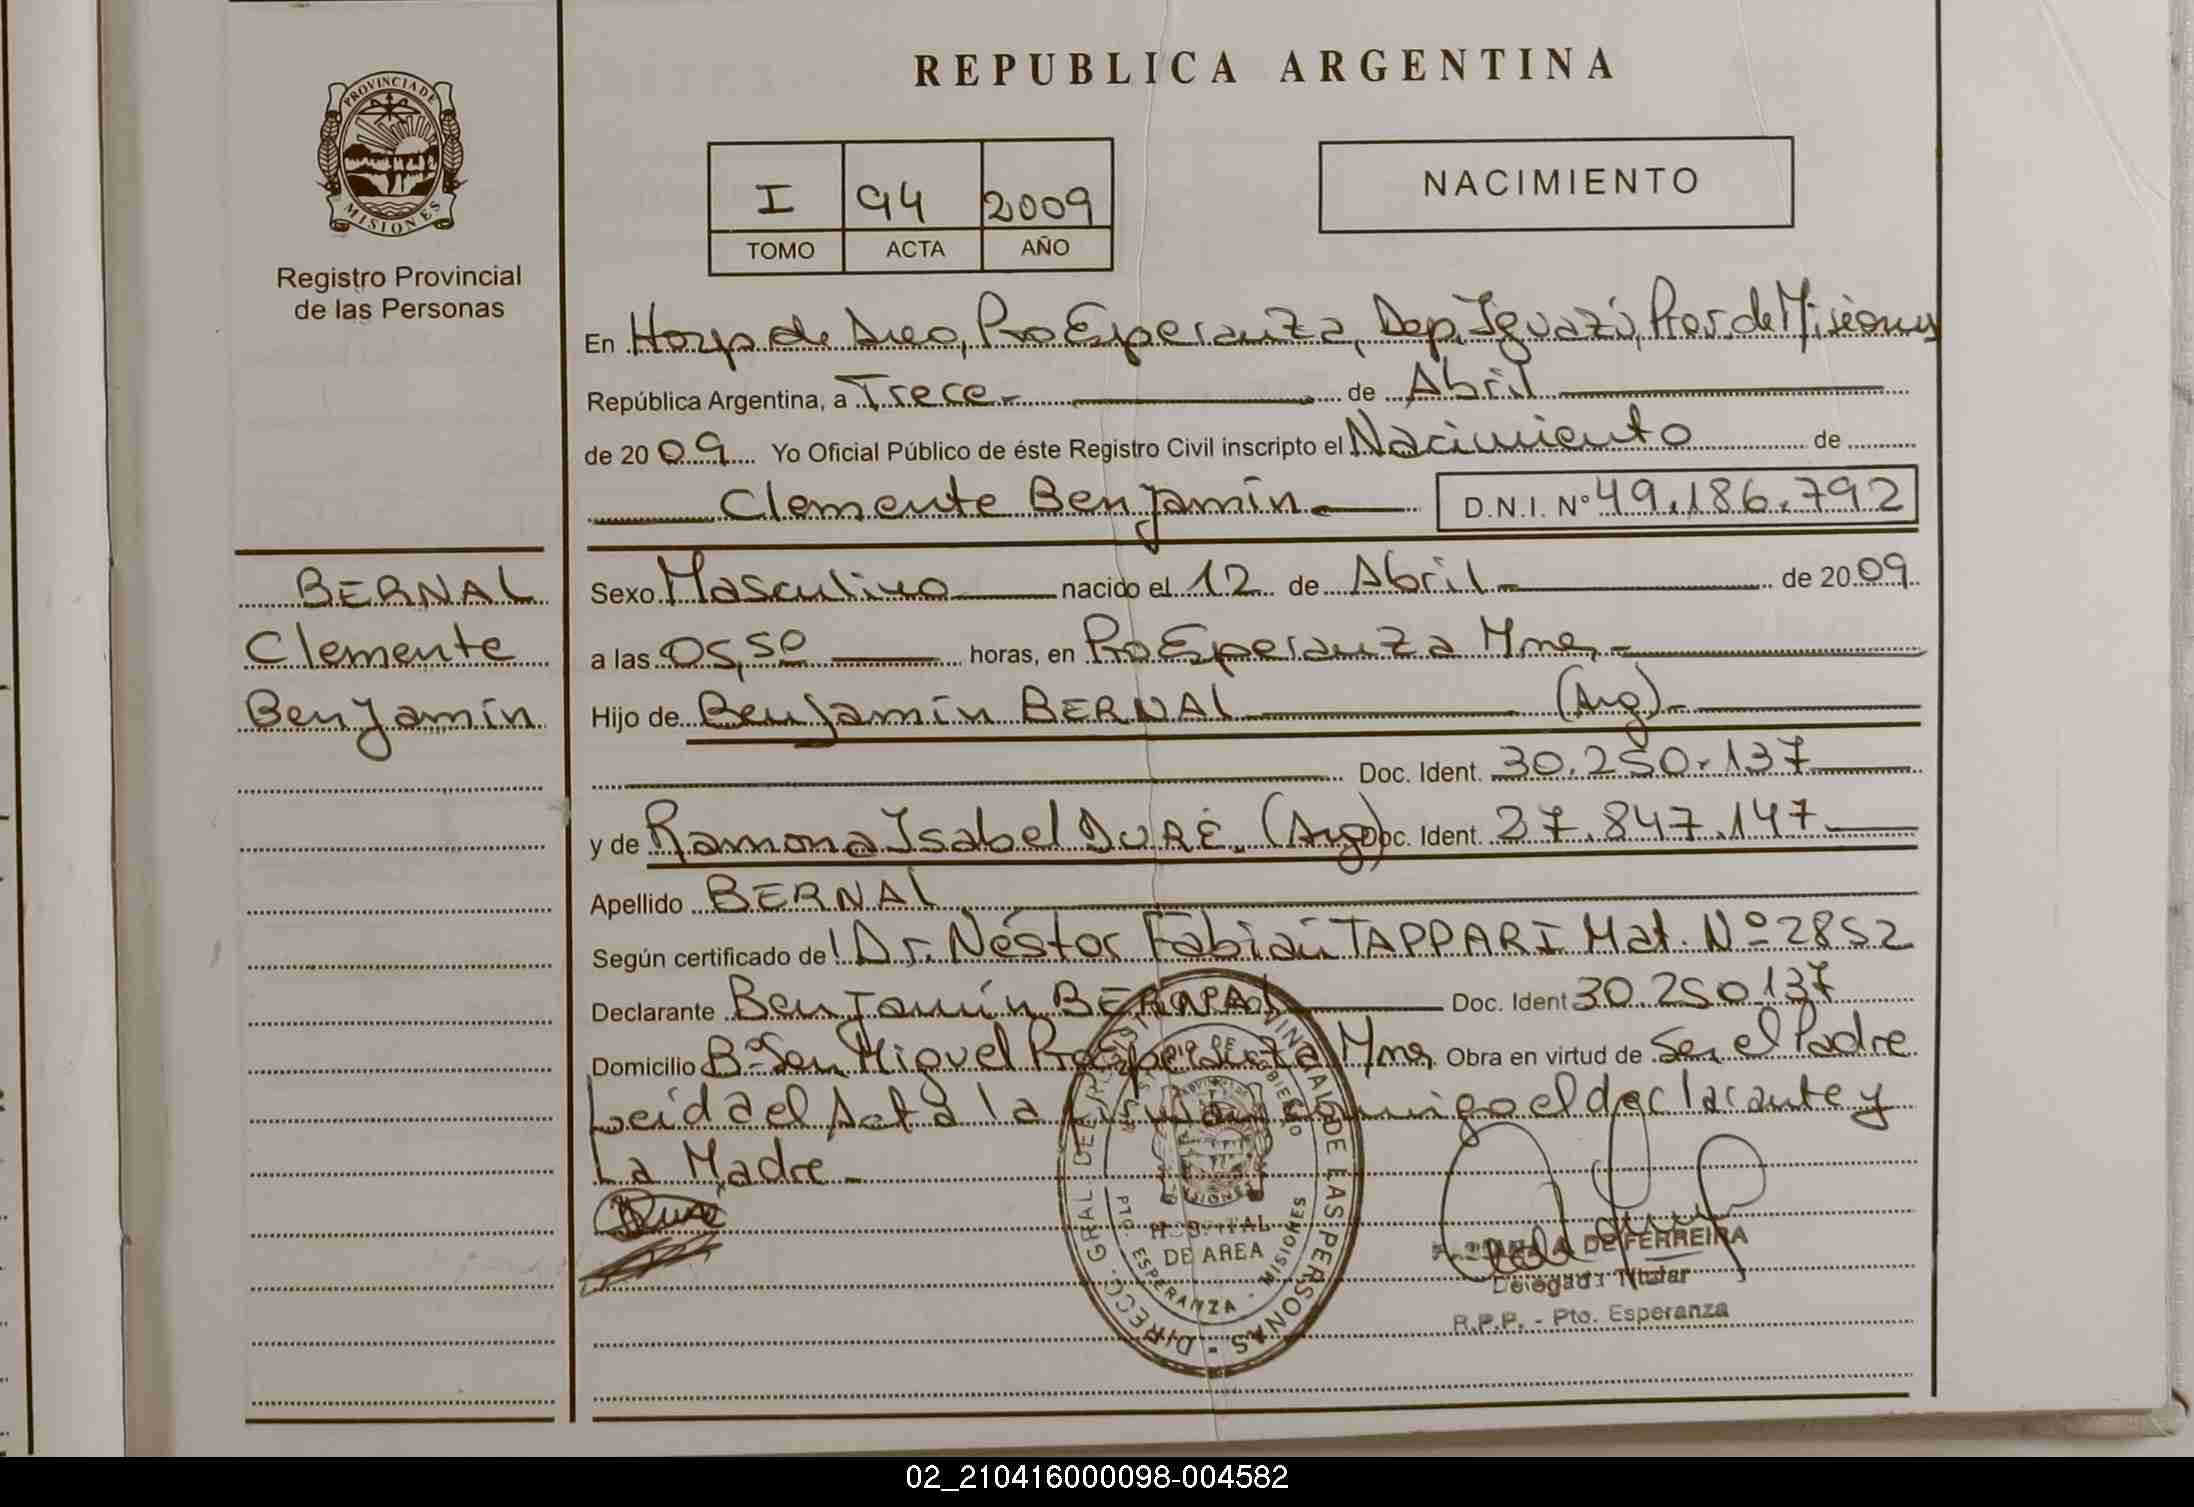 REPUBLICA ARGENTINA
PROVINCIA DE
MISIONES
Registro Provincial
de las Personas
I 94 2009
TOMO ACTA AÑO
NACIMIENTO
En Hosp de Area, Pto Esperanza, Dep. Iguazú, Prov. de Misiones
República Argentina, a Trece.- de Abril
de 2009 Yo Oficial Público de éste Registro Civil inscripto el Nacimiento de
Clemente Benjamín.- D.N.I. Nº 49.186.792
BERNAL
Clemente
Benjamín
Sexo Masculino nacido el 12 de Abril.- de 2009
a las 05,50 horas, en Pto Esperanza Mnes.-
Hijo de Benjamín BERNAL (Arg).-
Doc. Ident. 30.250.137
y de Ramona Isabel DURÉ. (Arg) Doc. Ident. 27.847.147.-
Apellido BERNAL
Según certificado de Dr. Néstor Fabián TAPPARI Mat. Nº 2852
Declarante Benjamín BERNAL Doc. Ident 30.250.137
Domicilio Bº San Miguel Pto Esperanza Mnes, Obra en virtud de Ser el Padre
Leida el Acta la firman conmigo el declarante y
La Madre.-
DIRECC. GRAL DEL REGISTRO PROVINCIAL DE LAS PERSONAS
MISIONES
HOSPITAL
DE AREA
PTO. ESPERANZA - MISIONES
DE FERREIRA
Delegada Titular
R.P.P. - Pto. Esperanza
02_210416000098-004582